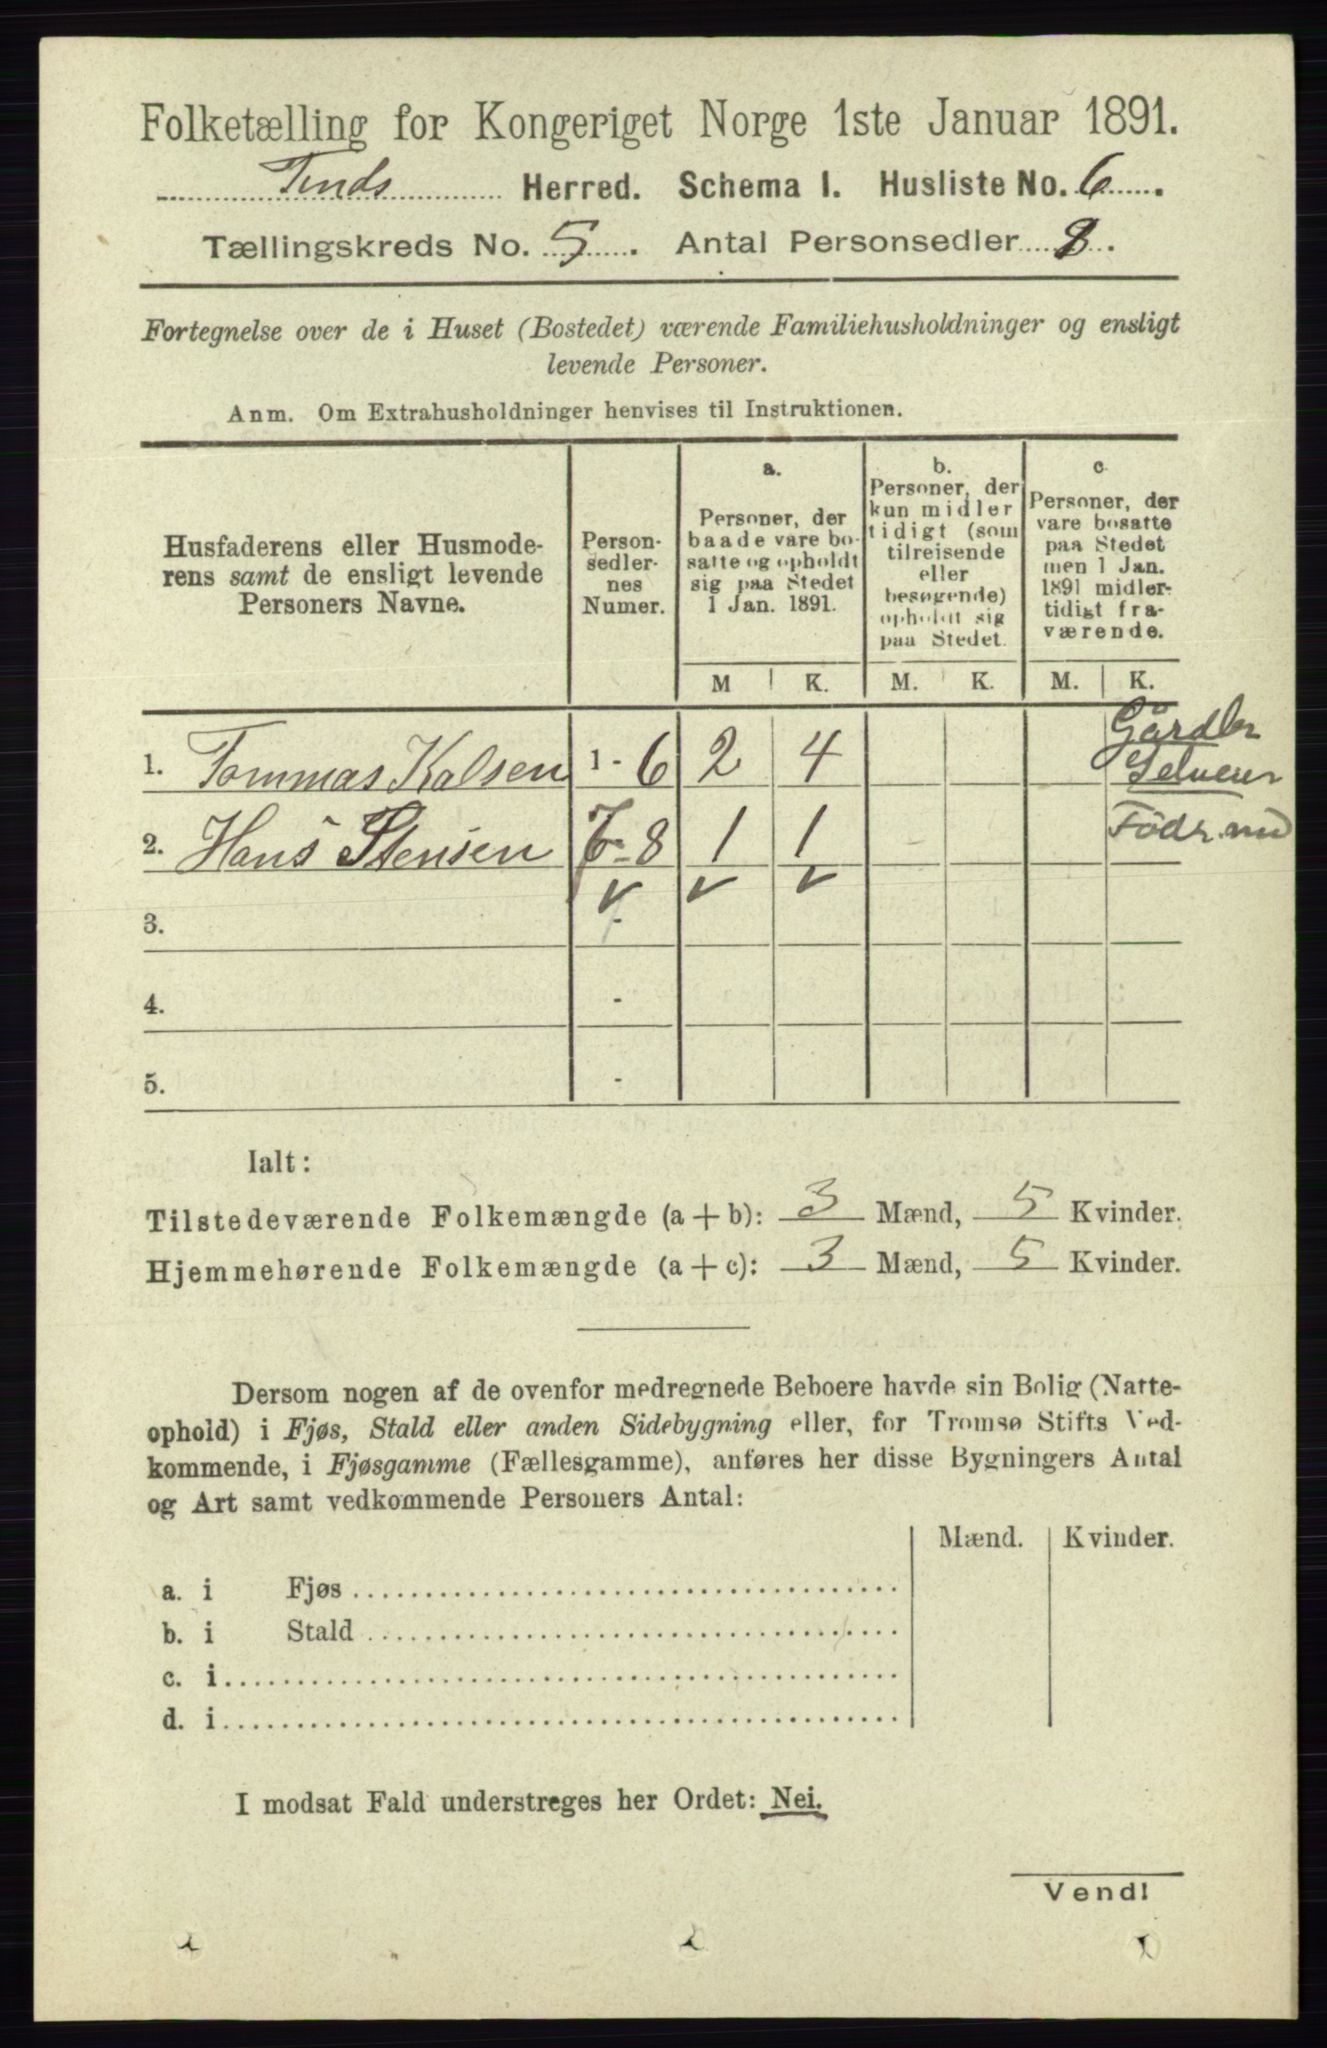 Folketælling for Kongeriget Norge 1ste Januar 1891.
Tinds Herred. Schema I. Husliste No. 6.
Tællingskreds No. 5. Antal Personsedler 8.
Fortegnelse over de i Huset (Bostedet) værende Familiehusholdninger og ensligt
levende Personer.
Anm. Om Extrahusholdninger henvises til Instruktionen.
Husfaderens eller Husmode-
rens samt de ensligt levende
Personers Navne.
Person-
sedler-
nes
Numer.
a.
Personer, der
baade vare bo-
satte og opholdt
sig paa Stedet
1 Jan. 1891.
b.
Personer, der
kun midler
tidigt (som
tilreisende
eller
besøgende)
opholdt sig
paa Stedet.
c
Personer, der
vare bosatte
paa Stedet
men 1 Jan.
1891 midler-
tidigt fra-
værende.
M K. M. K. M. K.
1. Tommas Kolsen 1 - 6 2 4 Gårdbr Selveier
2. Hans Stensen 7 - 8 1 1 Föder
3. -
4. -
5. -
Ialt:
Tilstedeværende Folkemængde (a + b): 3 Mænd, 5 Kvinder.
Hjemmehørende Folkemængde (a + c): 3 Mænd, 5 Kvinder.
Dersom nogen af de ovenfor medregnede Beboere havde sin Bolig (Natte-
ophold) i Fjøs, Stald eller anden Sidebygning eller, for Tromsø Stifts Ved-
kommende, i Fjøsgamme (Fællesgamme), anføres her disse Bygningers Antal
og Art samt vedkommende Personers Antal:
Mænd. Kvinder.
a. i Fjøs
b. i Stald
c. i
d. i
I modsat Fald understreges her Ordet: Nei.
Vend!